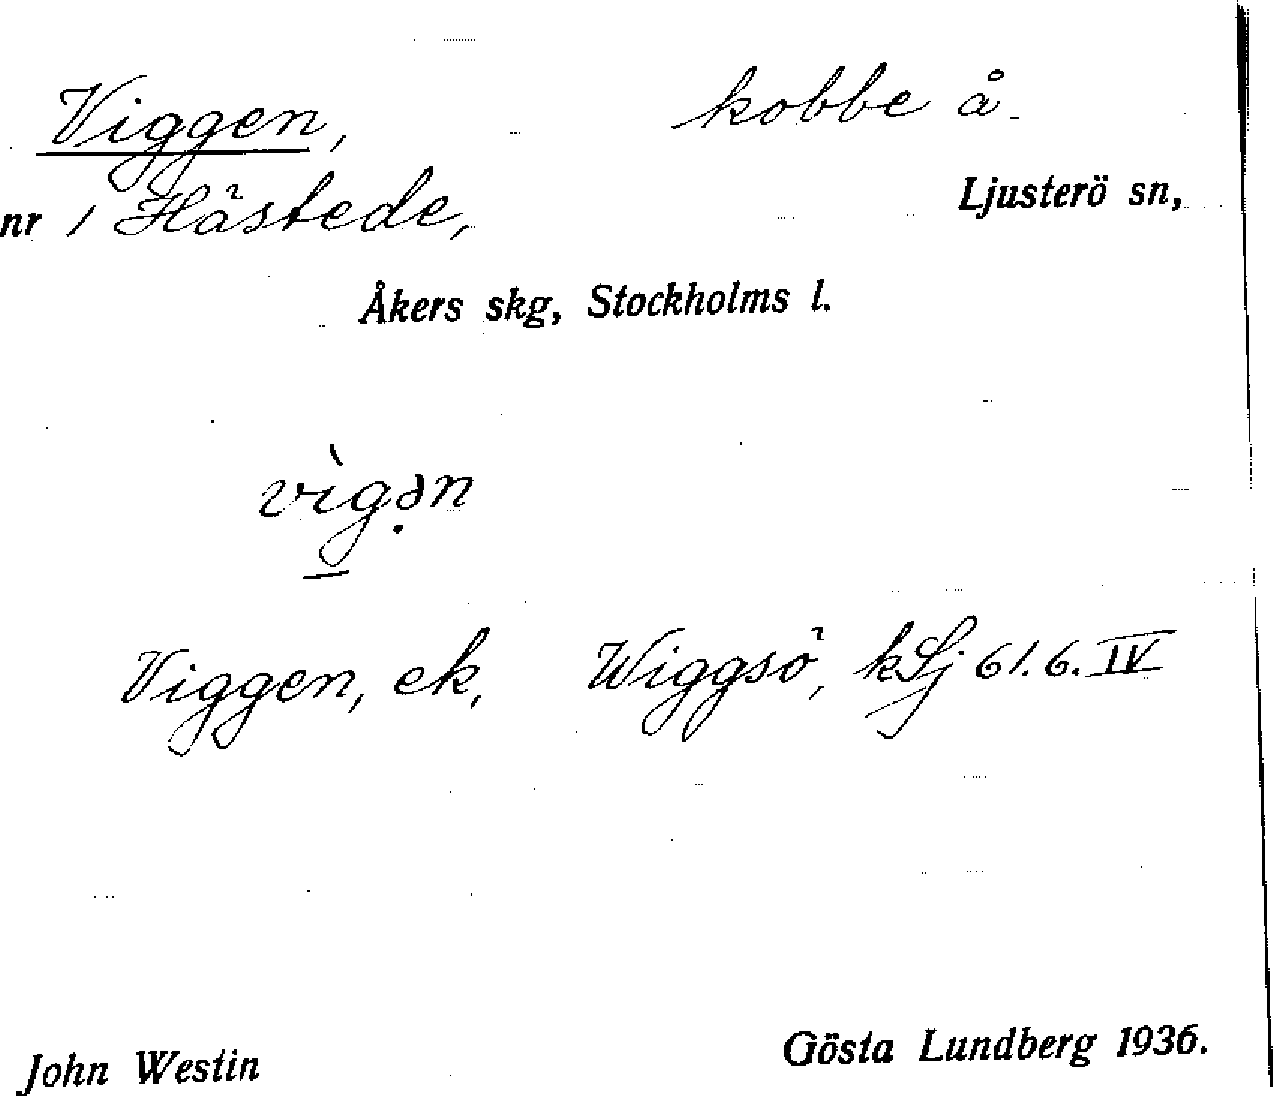 Viggen, kobbe å
nr 1 Hästede, Ljusterö sn,
Åkers skg, Stockholms l.
vìgə̣n
Viggen, ek, Wiggsö, kLj 61.6. IV
John Westin Gösta Lundberg 1936.